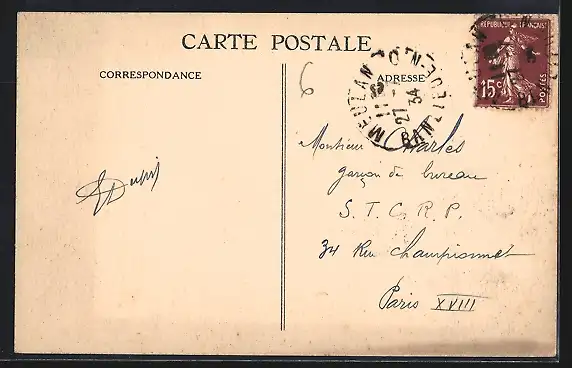 CARTE POSTALE
CORRESPONDANCE
ADRESSE
RÉPUBLIQUE FRANÇAISE
15c
POSTES
MEULAN
27
34
6
Monsieur Charles
garçon de bureau
S. T. C. R. P.
34 Rue Championnet
Paris XVIII